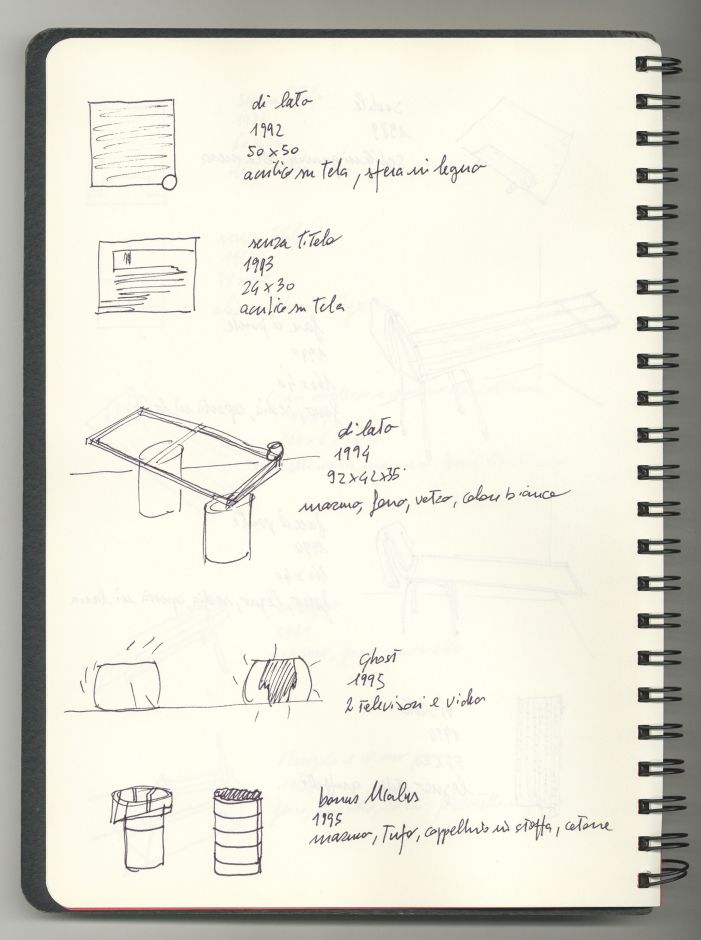 di lato
1992
50x50
acrilico su tela, sfera in legno
senza titolo
1993
24x30
acrilico su tela
di lato
1994
92x42x35
marmo, ferro, vetro, colore bianco
Ghost
1995
2 televisori e video
bonus Malus
1995
marmo, Tufo, cappellino in stoffa, catrame